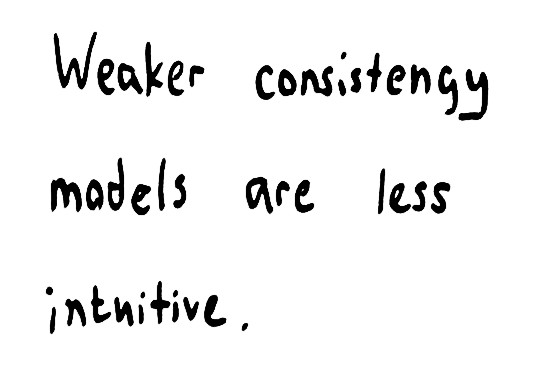 Weaker consistency
models are less
intuitive.